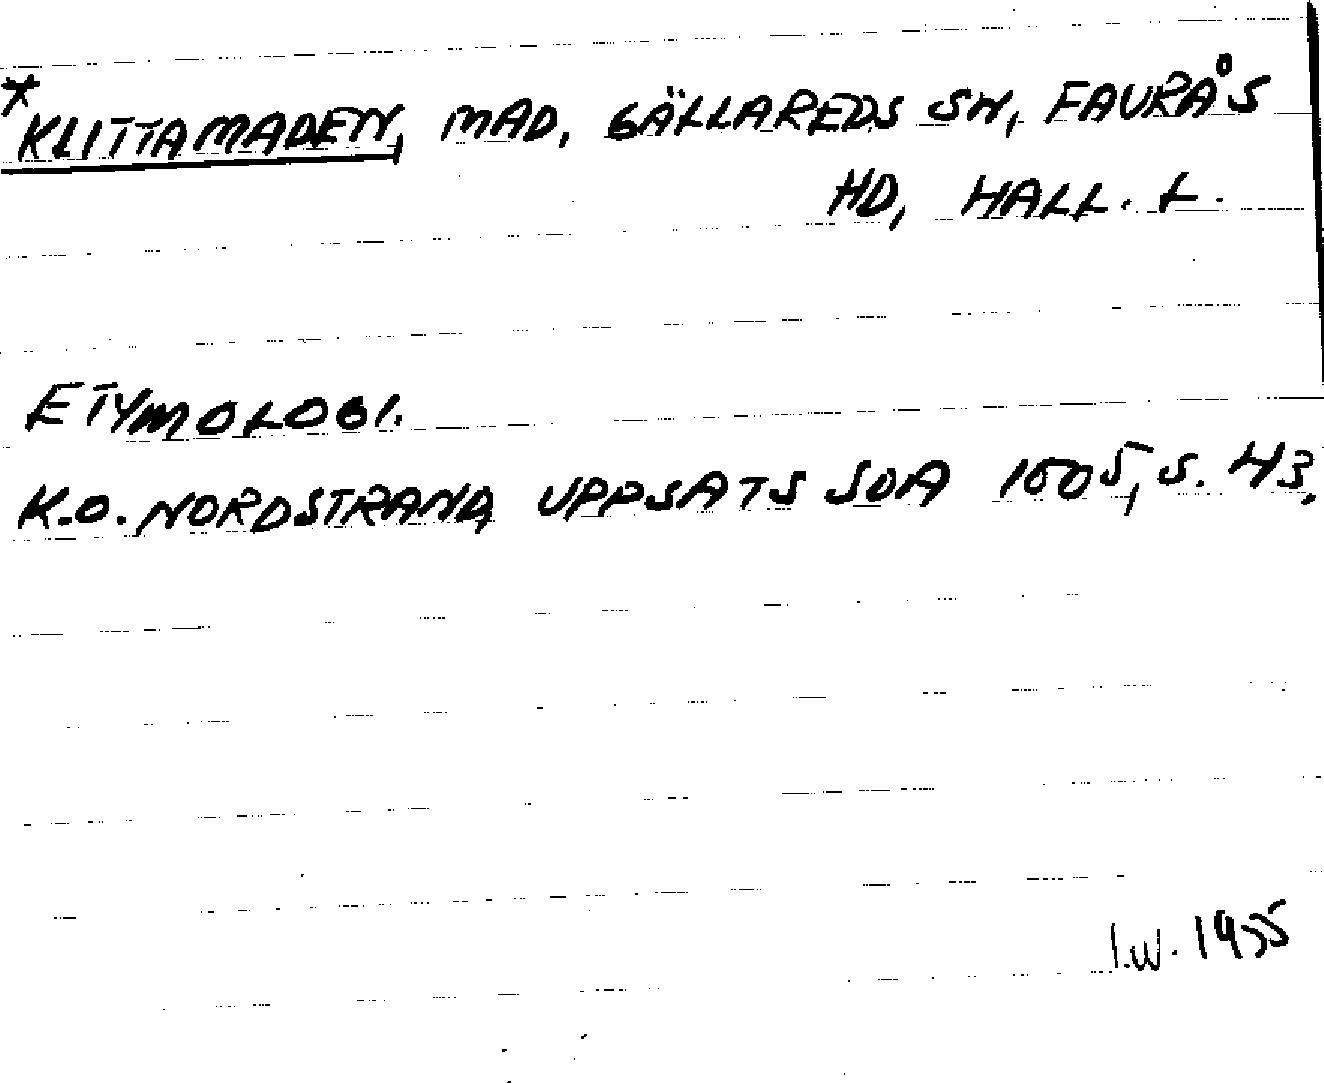 *KLITTAMADEN, MAD, GÄLLAREDS SN, FAURÅS
HD, HALL. L.
ETYMOLOGI.
K.O. NORDSTRAND, UPPSATS SOA 1605, S. 43.
I.W. 1955